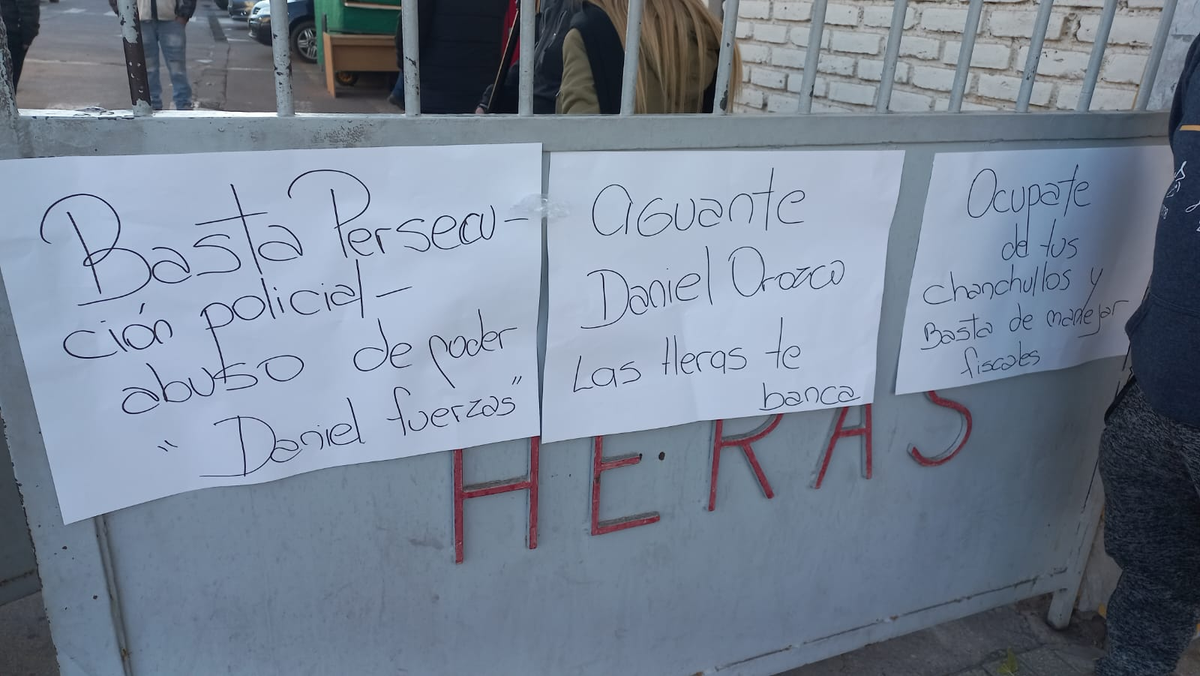 Basta Persecu-
ción policial-
abuso de poder
"Daniel fuerzas"
Aguante
Daniel Orozco
Las Heras te
banca
Ocupate
de tus
chanchullos y
Basta de manejar
fiscales
HERAS